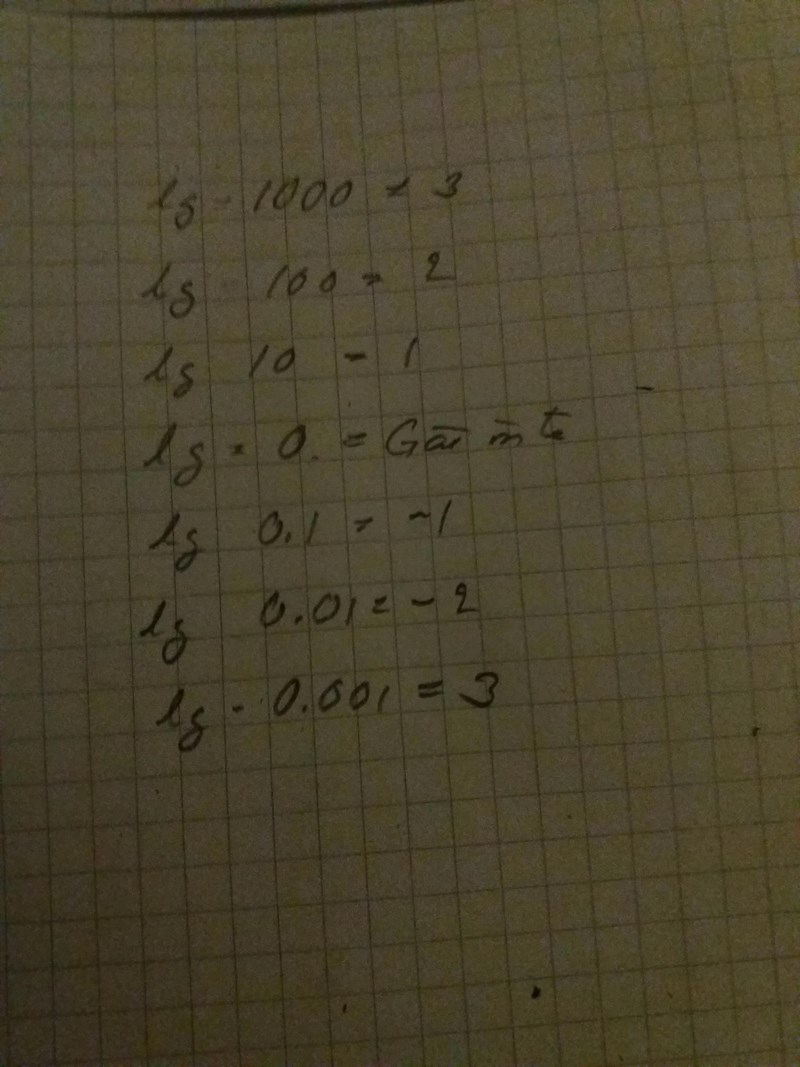 lg - 1000 = 3
lg 100 = 2
lg 10 - 1
lg - 0. = Går inte
lg 0.1 = -1
lg 0.01 = - 2
lg - 0.001 = 3